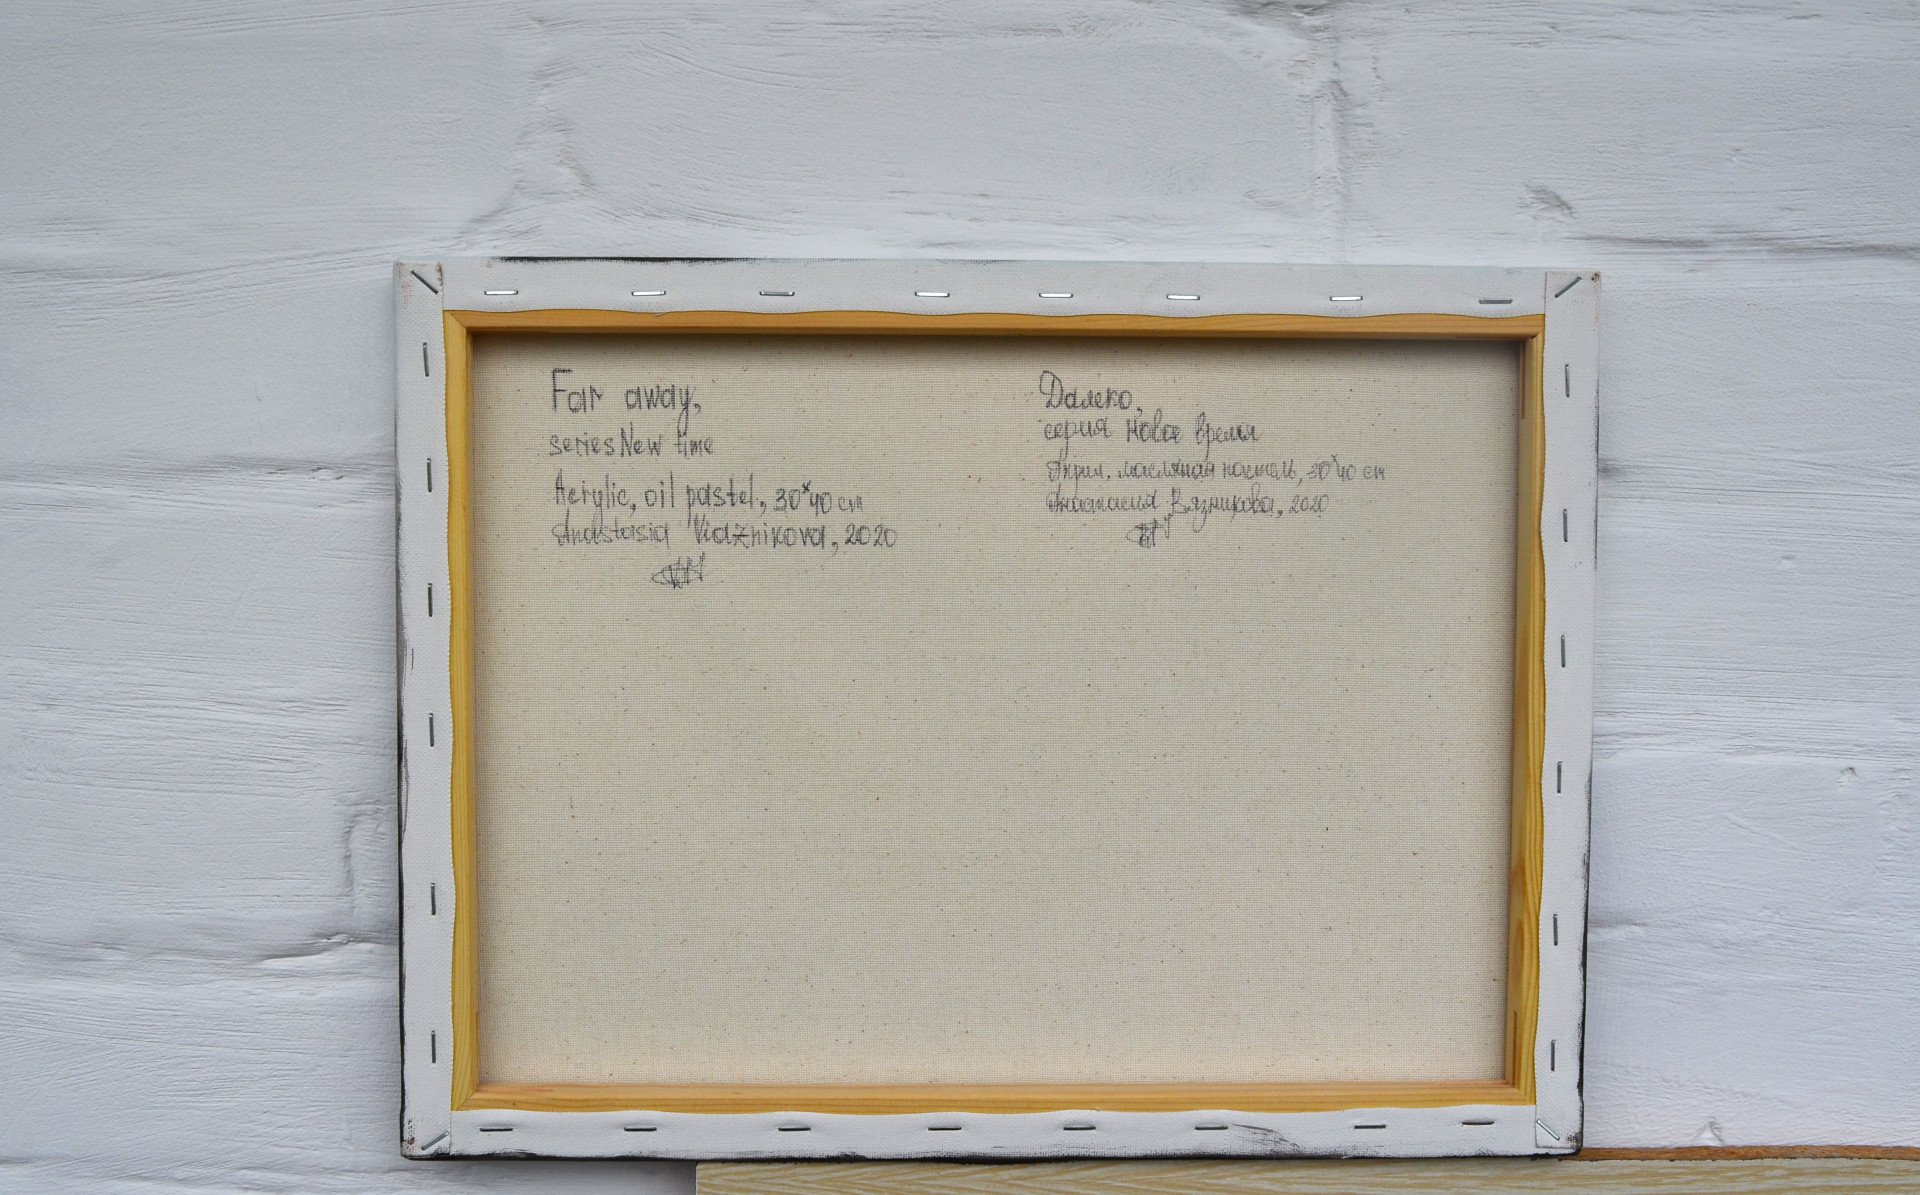 Far away,
series New time
Acrylic, oil pastel, 30×40 cm
Anastasia Viaznikova, 2020
Далеко,
серия Новое время
Акрил, масляная пастель, 30×40 cm
Анастасия Вязникова, 2020